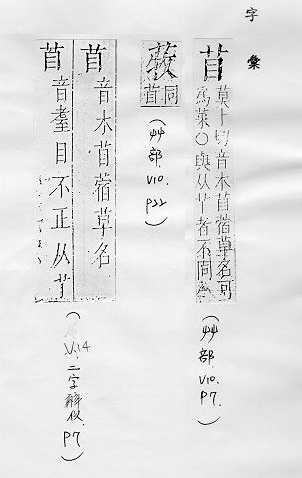 字彙
苜
莫卜切音木苜蓿草名可
為菜○與从者不同
(艸部. V10. P7.)
同
苜
(艸部. V10. P22)
苜音木苜蓿草名
苜音耄目不正从
(V.14 二字辨似 P7)